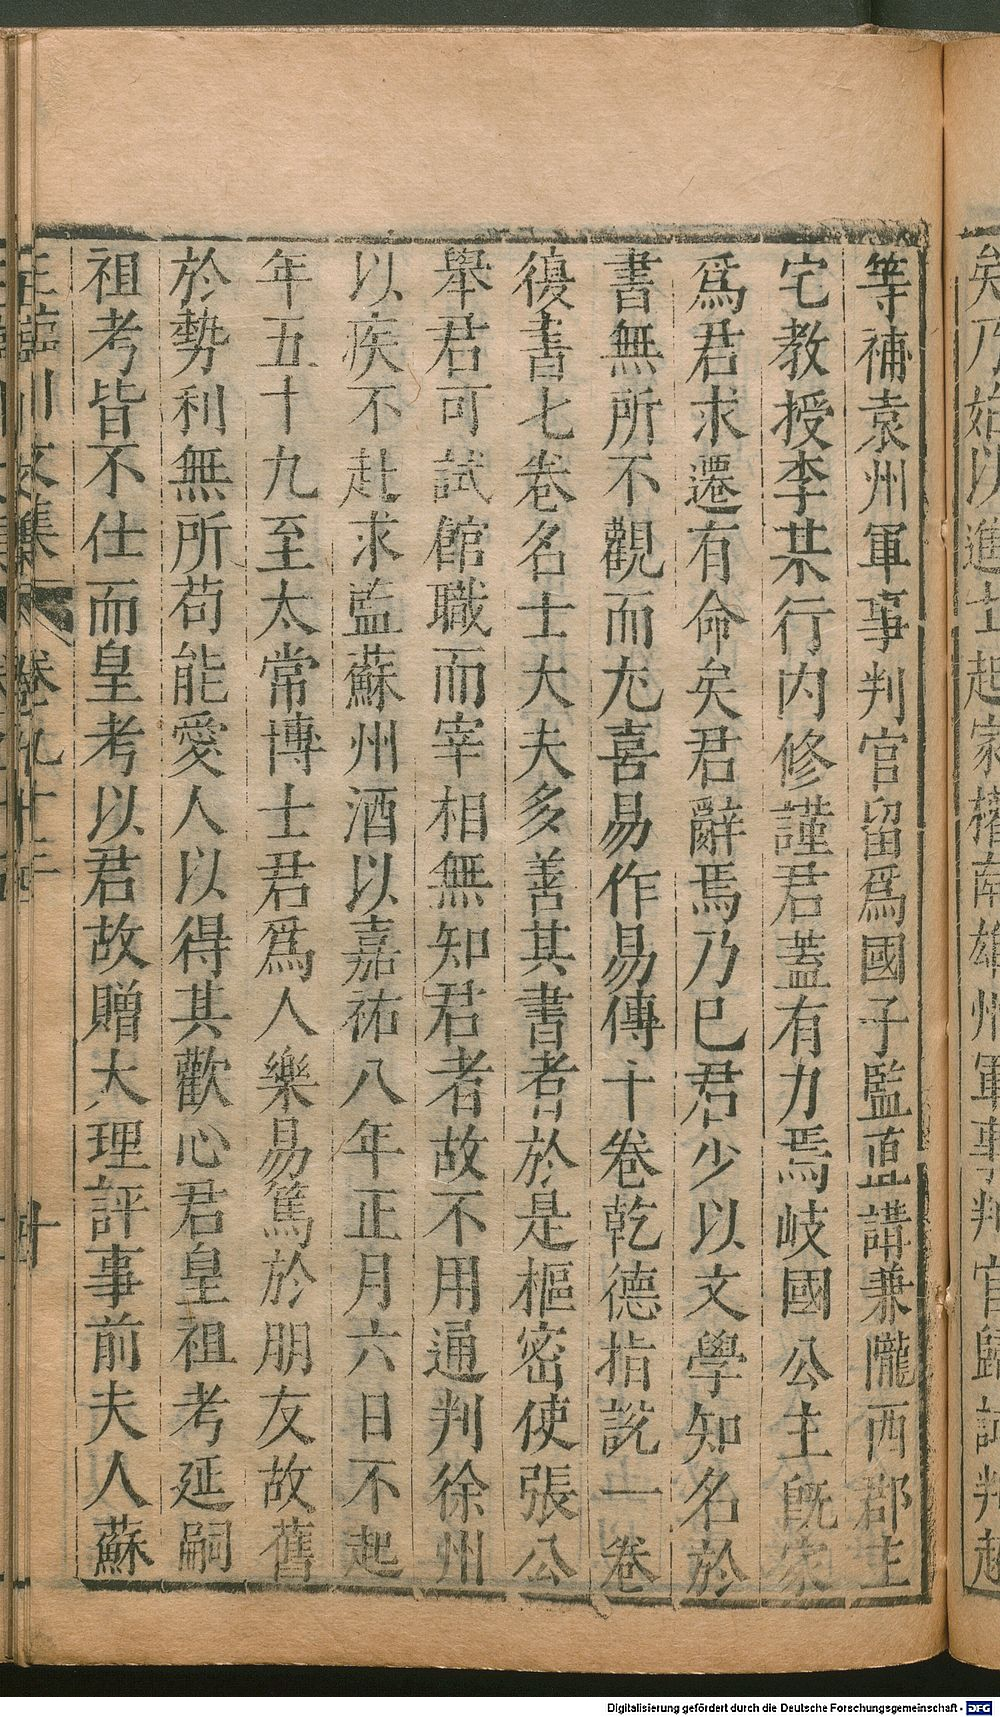 等補袁州軍事判官留爲國子監直講兼隴西郡主
宅教授李某行内修謹君蓋有力焉岐國公主旣家
爲君求遷有命矣君辭焉乃已君少以文學知名於
書無所不觀而尤喜易作易傳十卷乾德指説一卷
復書七卷名士大夫多善其書者於是樞密使張公
舉君可試館職而宰相無知君者故不用通判徐州
以疾不赴求監蘇州酒以嘉祐八年正月六日不起
年五十九至太常博士君爲人樂易篤於朋友故舊
於勢利無所苟能愛人以得其歡心君皇祖考延嗣
祖考皆不仕而皇考以君故贈大理評事前夫人蘇
王臨川文集
卷九十三
矣乃始以進士起家權南雄州軍事判官歸試判超
Digitalisierung gefördert durch die Deutsche Forschungsgemeinschaft - DFG